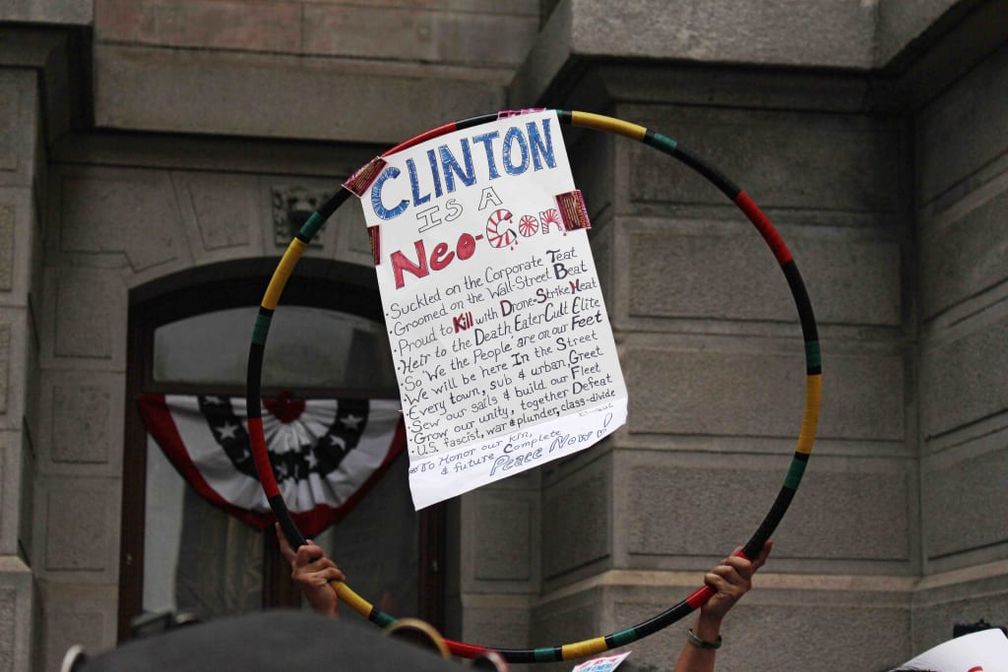 CLINTON
IS A
Neo-Con
·Suckled on the Corporate Teat
·Groomed on the Wall-Street Beat
·Proud to Kill with Drone-Strike Heat
·Heir to the Death Eater Cult Elite
·So 'We the People' are on our Feet
·We will be here In the Street
·Every town, sub & urban, Greet
·Sew our sails & build our Fleet
·Grow our unity, together Defeat
·U.S. fascist, war & plunder, class-divide
To Honor our kin,
& future Complete
Peace Now!